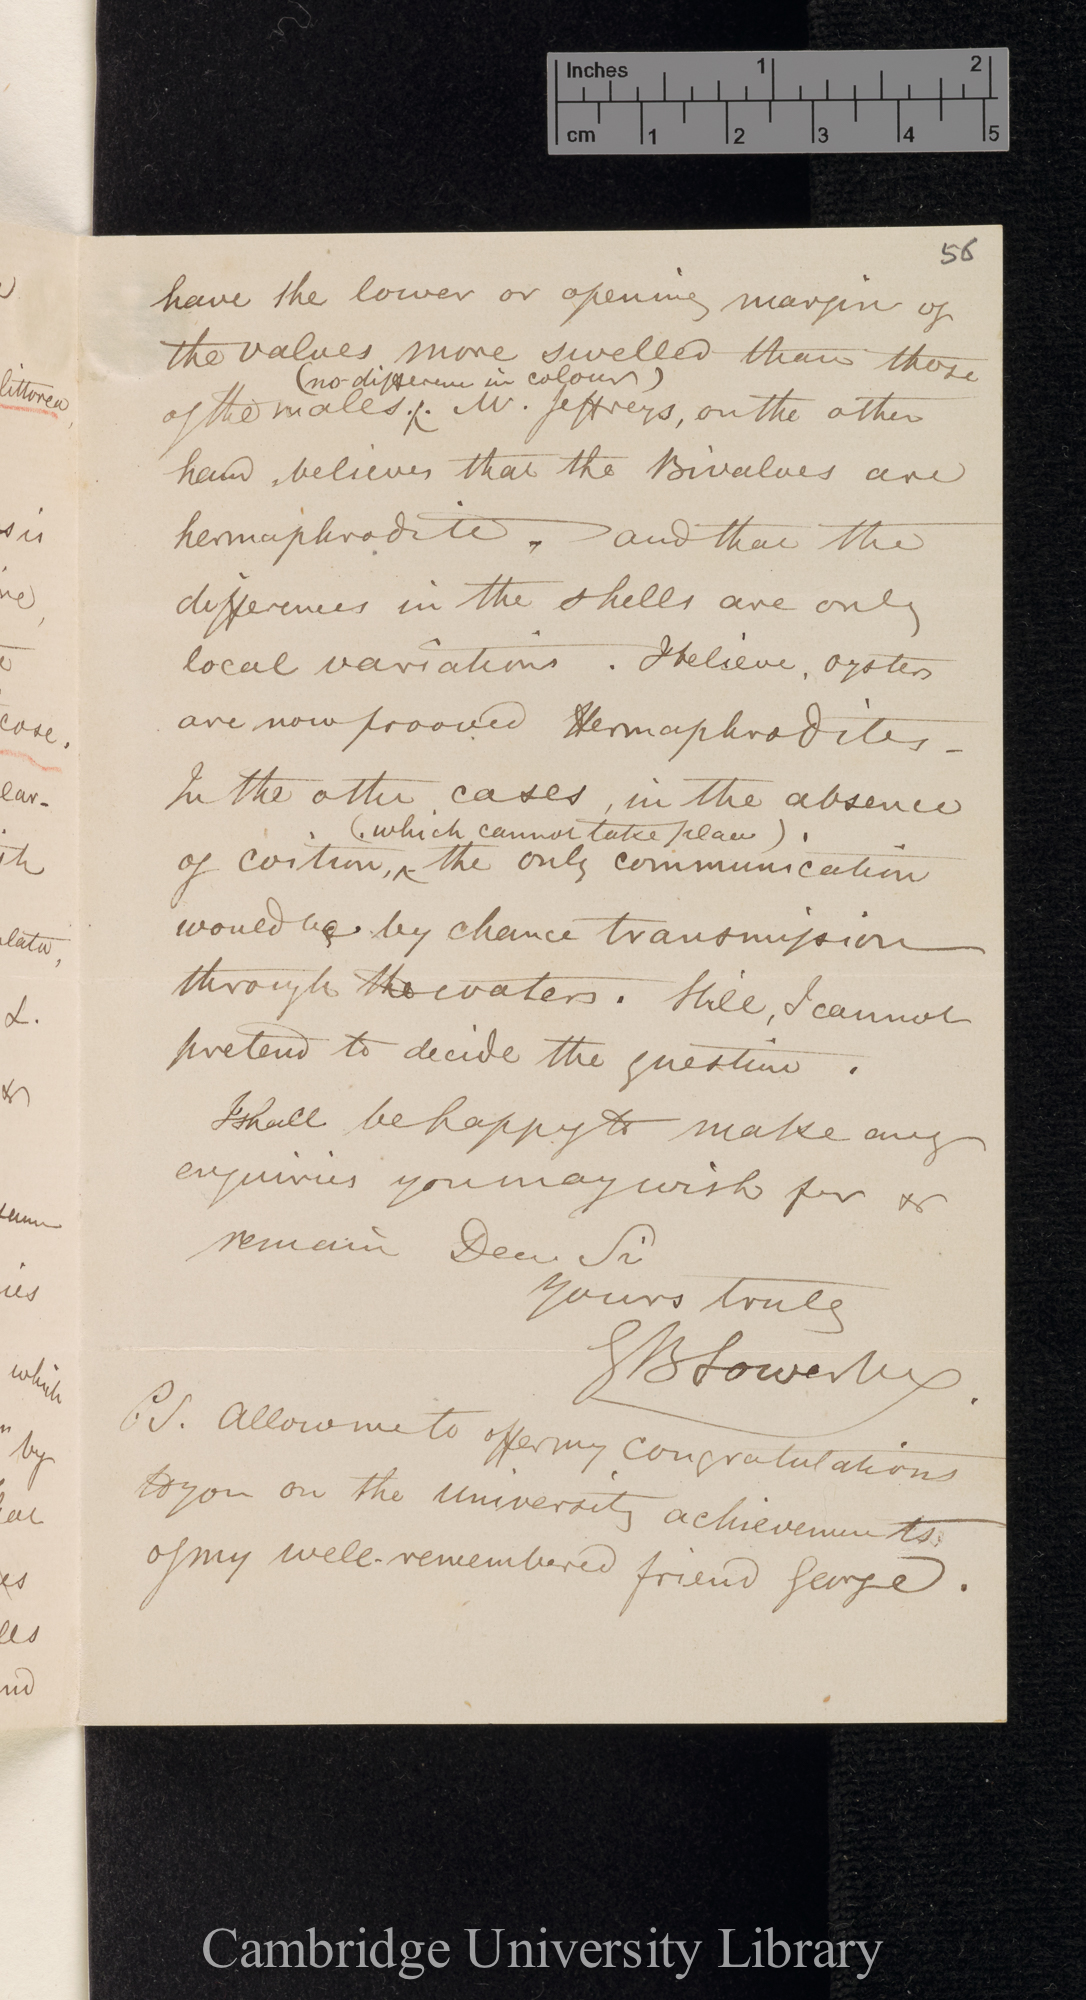 Inches 1 2
cm 1 2 3 4 5
56
have the lower or opening margin of
the valves more swelled than those
(no difference in colour)
of the males. Mr. Jeffreys, on the other
hand, believes that the Bivalves are
hermaphrodite, and that the
differences in the shells are only
local variations. I believe, oysters
are now prooved Hermaphrodites -
In the other cases, in the absence
(which cannot take place)
of coition, the only communication
would be by chance transmission
through the waters. Still, I cannot
pretend to decide the question.
I shall be happy to make any
enquiries you may wish for &
remain Dear Sir
Yours truly
G B Sowerby.
P.S. Allow me to offer my congratulations
to you on the university achievements
of my well-remembered friend George.
littorea,
s is
case.
ear-
&
which
by
nd
Cambridge University Library